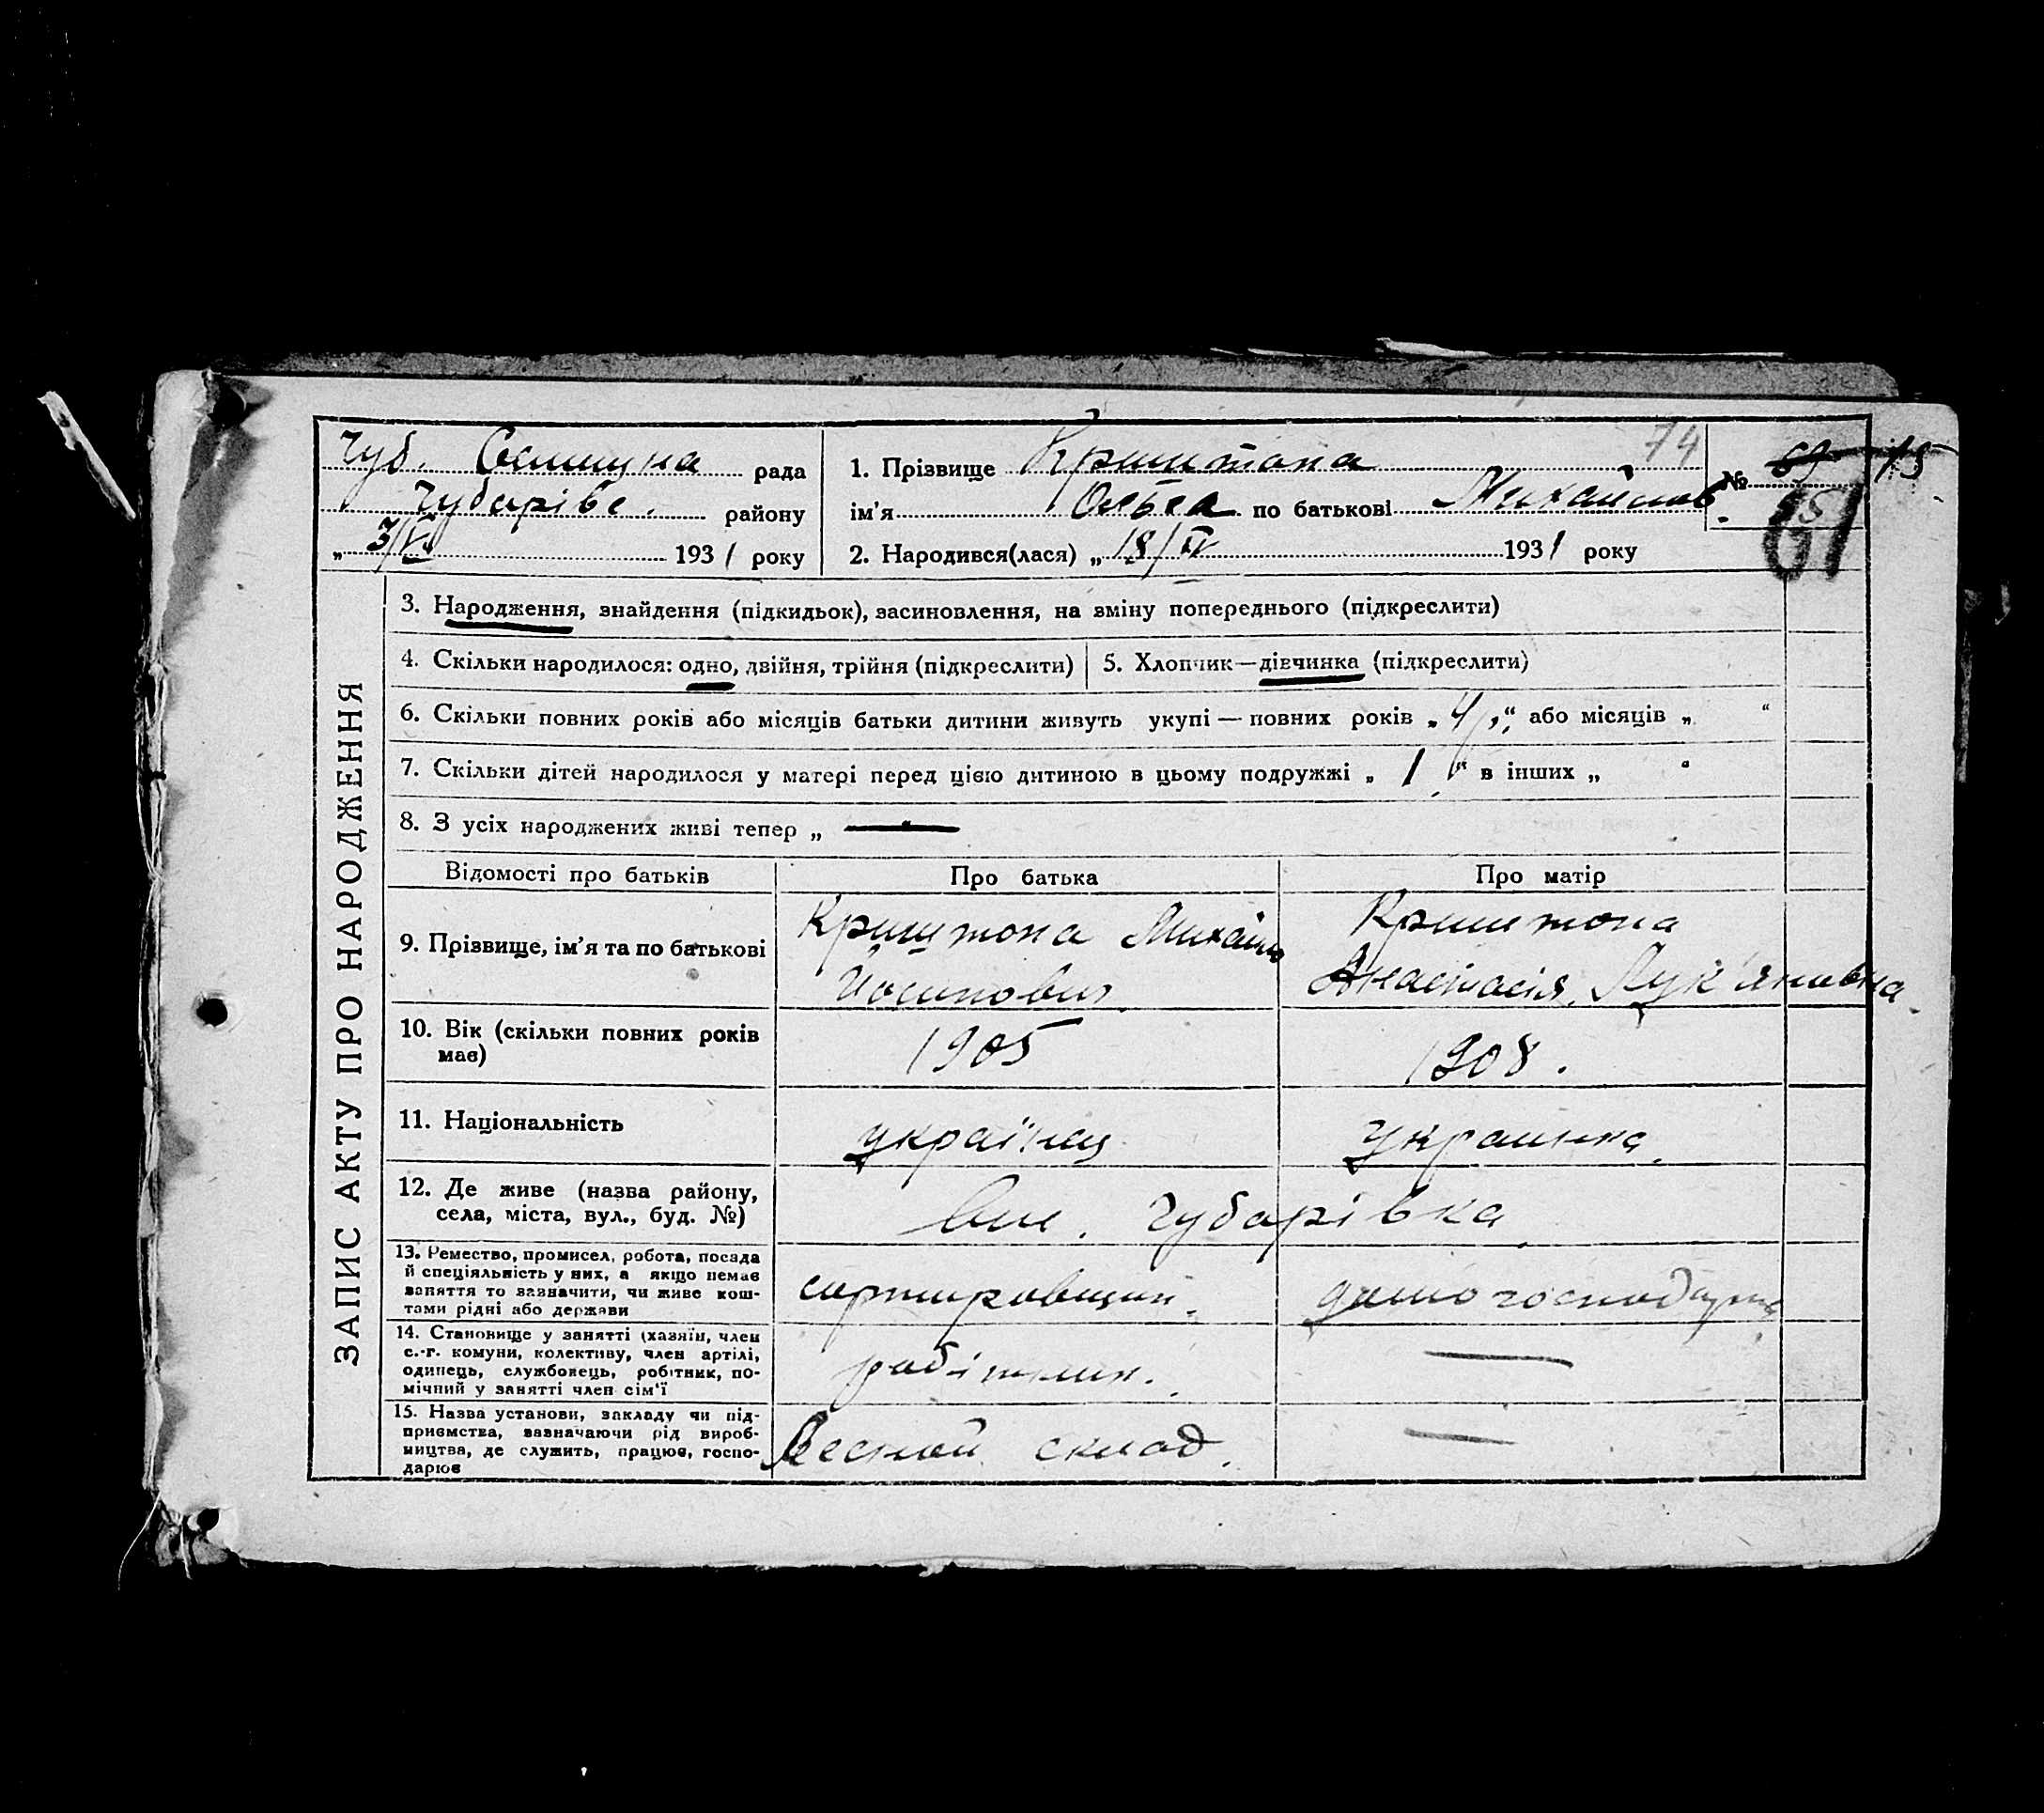 Чуб. Селищна рада
Чубарівс. району
„ 3/V 1931 року
1. Прізвище Криштопа 74
ім’я Ольга по батькові Михайлов.
2. Народився(лася) „ 18/IV 1931 року
№ 69 75
61
ЗАПИС АКТУ ПРО НАРОДЖЕННЯ
3. Народження, знайдення (підкидьок), засиновлення, на зміну попереднього (підкреслити)
4. Скільки народилося: одно, двійня, трійня (підкреслити)
5. Хлопчик—дівчинка (підкреслити)
6. Скільки повних років або місяців батьки дитини живуть укупі — повних років „ 4 “ або місяців „ “
7. Скільки дітей народилося у матері перед цією дитиною в цьому подружжі „ 1 “ в інших „ “
8. З усіх народжених живі тепер „ — “
Відомості про батьків
Про батька
Про матір
9. Прізвище, ім’я та по батькові
Криштопа Михайло
Йосипович
Криштопа
Анастасія Лук'янівна.
10. Вік (скільки повних років
має)
1905
1908.
11. Національність
українец
Украинка.
12. Де живе (назва району,
села, міста, вул., буд. №)
Чубарівка
13. Ремество, промисел, робота, посада
й спеціяльність у них, а якщо немає
заняття то зазначити, чи живе кош-
тами рідні або держави
сортировщик.
домогосподарка
14. Становище у занятті (хазяїн, член
с.-г. комуни, колективу, член артілі,
одинець, службовець, робітник, по-
мічний у занятті член сім’ї
робітник.
—
15. Назва установи, закладу чи під-
приємства, зазначаючи рід вироб-
ництва, де служить, працює, госпо-
дарює
Лесной склад.
—